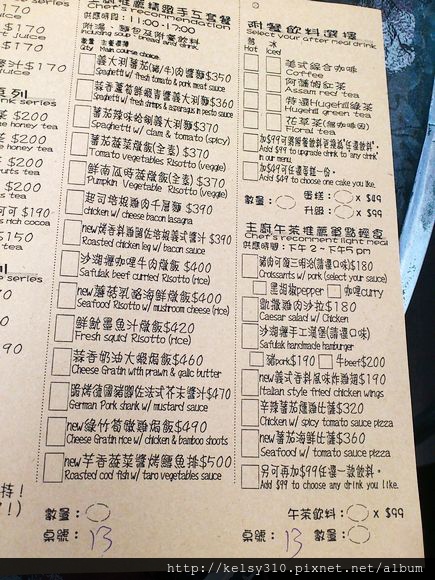 170
$170
r juice
$170
tea
系列
rink series
茶 $200
e honey tea
$200
e honey tea
$200
fruits tea
$200
tea
可可 $190
s rich cocoa
$150
tea
series
90
主廚推薦精緻手工套餐
Chef's recommendation
供應時間：11:00-17:00
附湯、麵包及附餐飲料
including soup, bread and drink.
數量 主餐選擇
City Main course choice
義大利蕃茄(豬/牛)肉醬麵 $350
Spaghetti w/ fresh tomato & pork meat sauce
$360
Spaghetti w/ fresh shrimps & asparagus in pesto sauce
蕃茄辣味蛤蜊義大利麵 $370
Spaghetti w/ clam & tomato (spicy)
蕃茄蔬菜燉飯(全素) $370
Tomato vegetables Risotto (veggie)
鮮南瓜時蔬燉飯(全素) $370
Pumpkin Vegetable Risotto (veggie)
起司培根雞肉千層麵 $390
chicken w/ cheese bacon lasagna
$390
Roasted chicken leg w/ bacon sauce
沙發樹咖哩牛肉燉飯 $400
Safulak beef curried Risotto (rice)
new 蘑菇乳酪海鮮燉飯 $400
Seafood Risotto w/ mushroom cheese (rice)
鮮魷墨魚汁燉飯 $420
Fresh squid Risotto (rice)
蒜香奶油大蝦焗飯 $460
Cheese Gratin with prawn & garlic butter
脆烤德國豬腳佐法式芥末醬汁 $470
German Pork shank w/ mustard sauce
new 綠竹筍嫩雞焗飯 $490
Cheese Gratin rice w/ chicken & bamboo shoots
new 芋香蔬菜醬烤鱈魚排 $500
Roasted cod fish w/ taro vegetables sauce
持！
！)
數量：
桌號： 13
附餐飲料選擇
Select your after meal drink
熱 冰
Hot Iced
美式綜合咖啡
Coffee
阿薩姆紅茶
Assam red tea
特選Hugehill綠茶
Hugehill green tea
花草茶(無咖啡因)
Floral tea
Add $99 to upgrade drink to any drink
in our menu.
加$49可任選蛋糕一份。
Add $49 to choose one cake you like.
數量： 蛋糕： x $49
升級： x $99
主廚午茶推薦單點輕食
Chef's recomment light meal
供應時間：下午2~下午5 pm
豬肉可頌三明治(請選口味) $180
Croissants w/ pork (select your sauce)
黑胡椒pepper 咖哩curry
凱撒雞肉沙拉 $180
Caesar salad w/ Chicken
沙發樹手工漢堡(請選口味)
Safulak handmade hamburger
豬pork $190 牛beef $200
new 義式香料風味炸雞翅 $190
Italian style fried chicken wings
辛辣蕃茄嫩雞比薩 $320
Chicken w/ spicy tomato sauce pizza
new 蕃茄海鮮比薩 $360
Seafood w/ tomato sauce pizza
另可再加$99任選一款飲料。
Add $99 to choose any drink you like.
午茶飲料： x $99
數量：
桌號： 13
http://kelsy310.pixnet.net/album